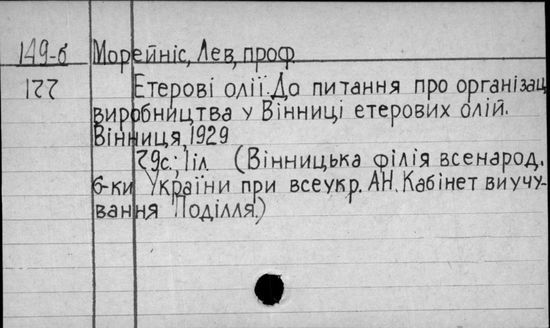 149-б Морейніс, Лев, проф.
177 Етерові олії. До питання про організац
виробництва у Вінниці етерових олій.
Вінниця, 1929
29с.; 1іл (Вінницька філія всенарод.
б-ки України при всеукр. АН. Кабінет виучу-
вання Поділля.)